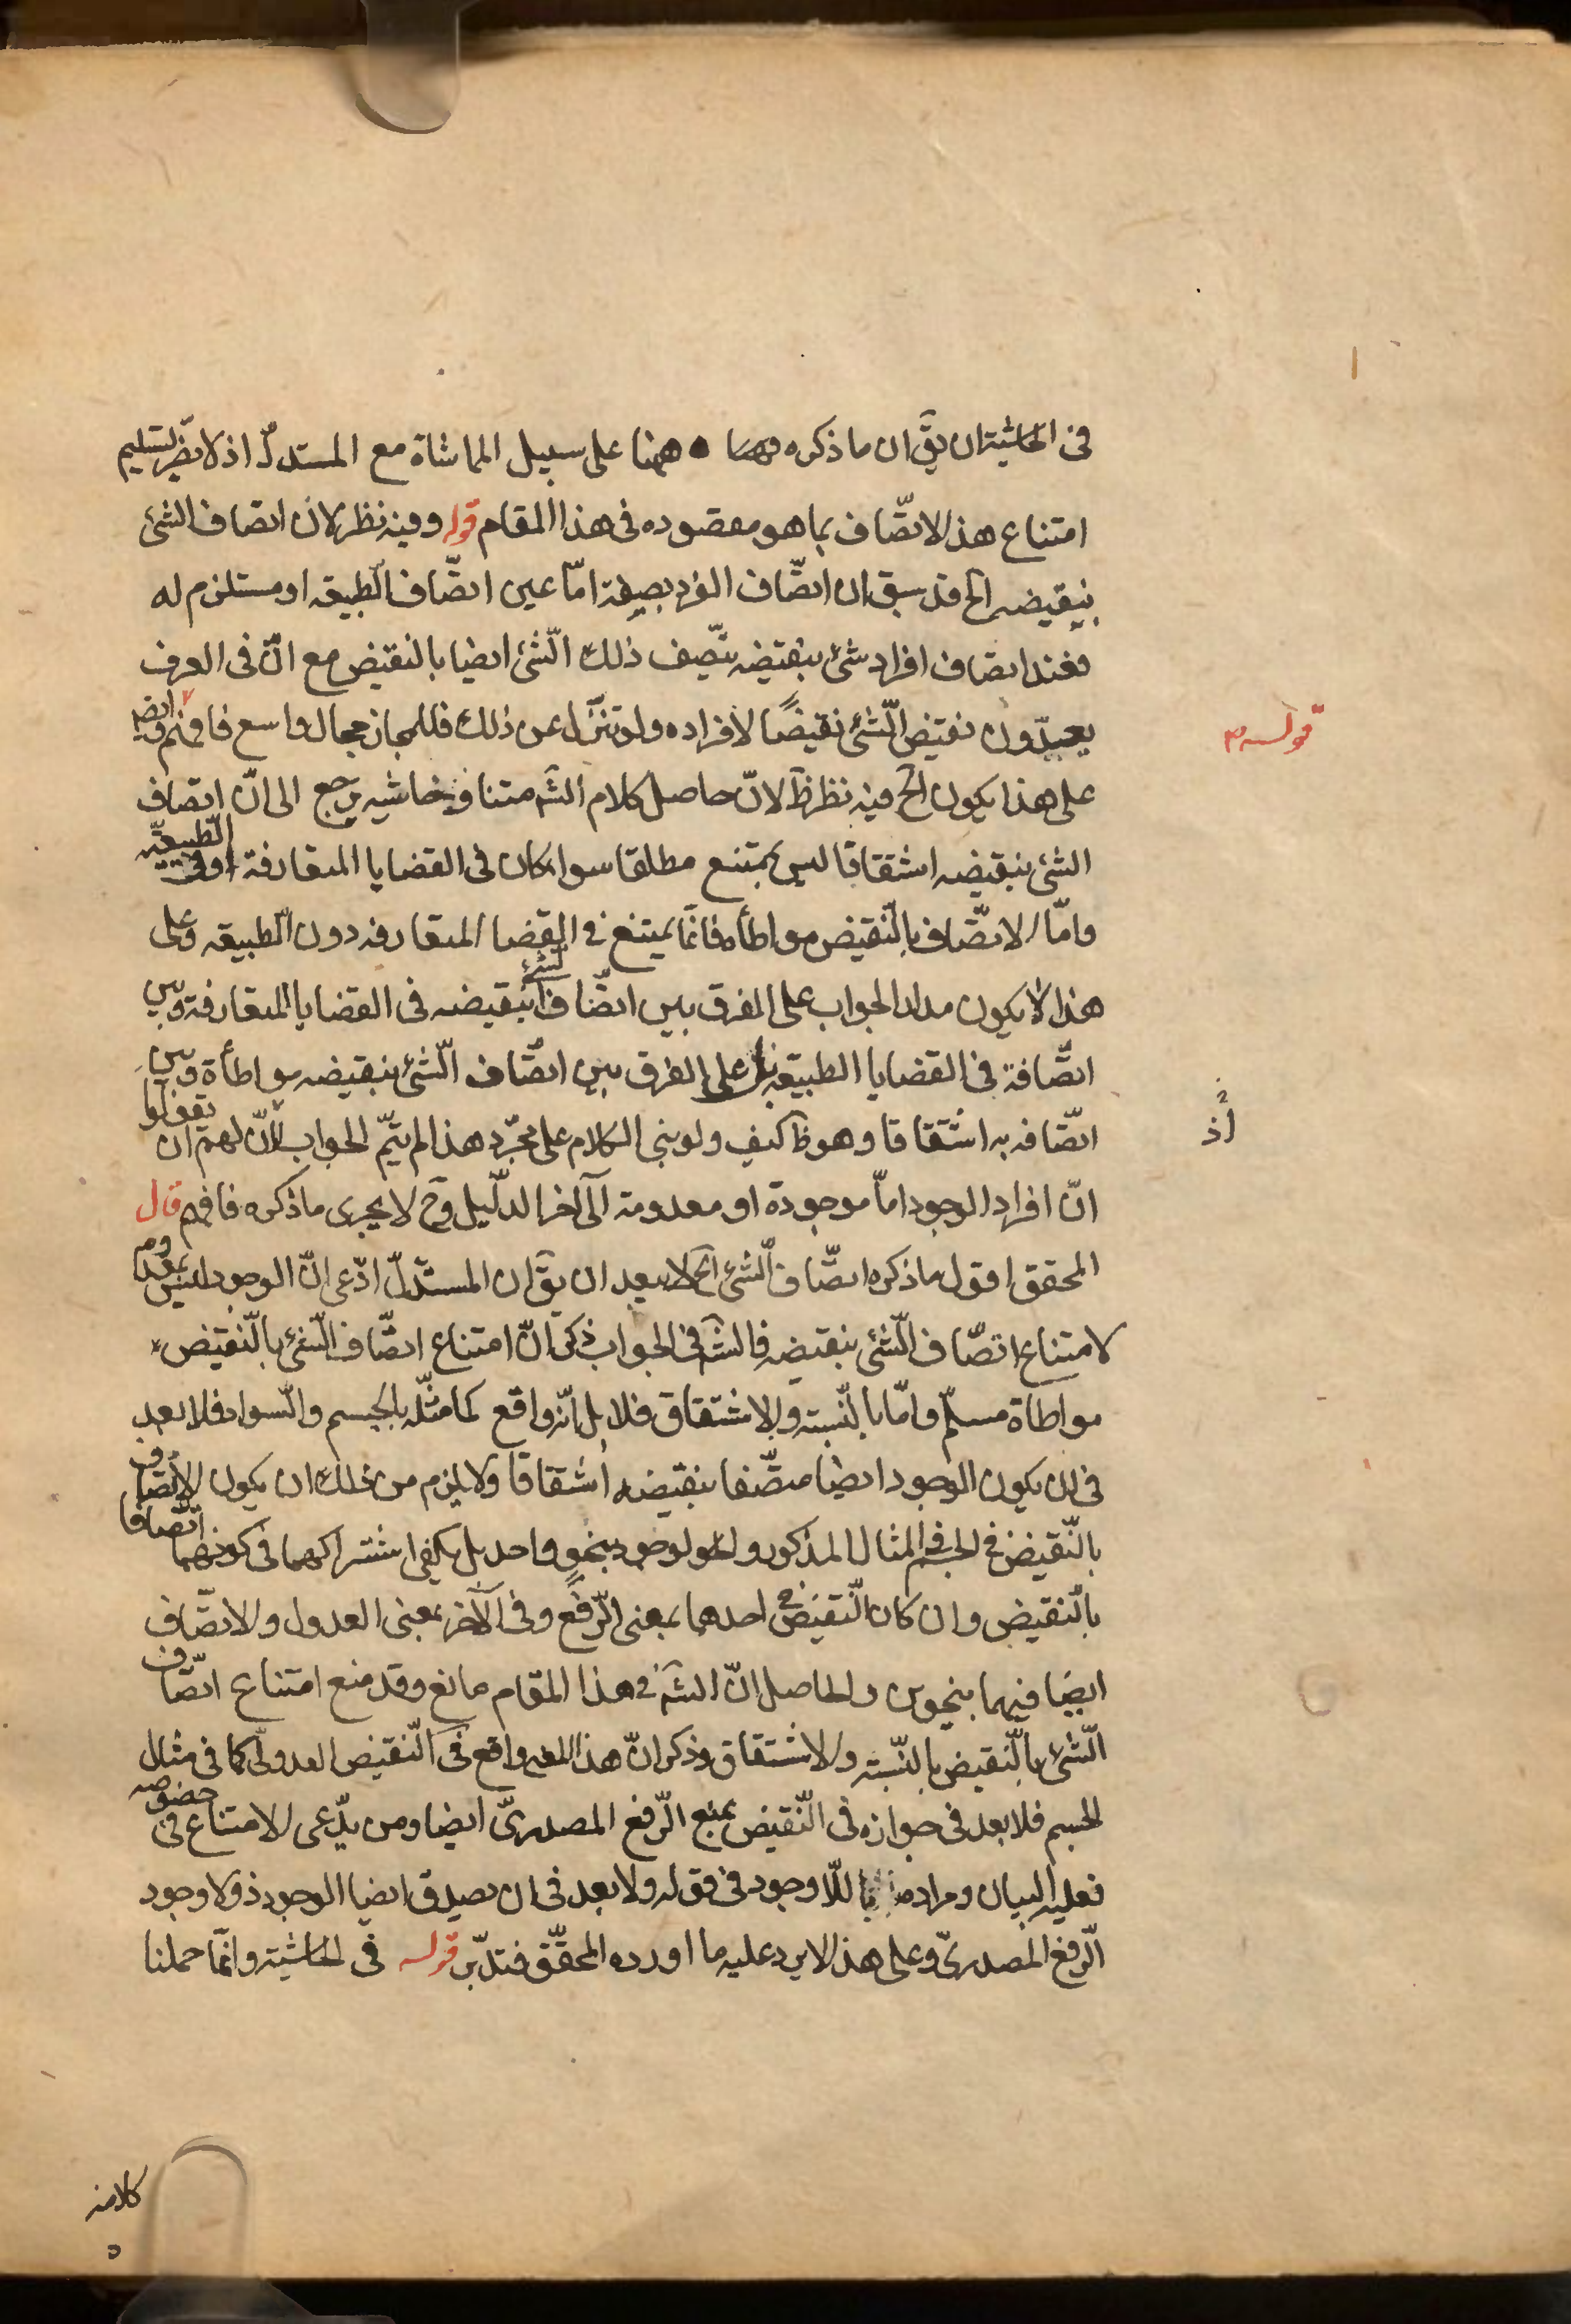 فى الحاشية ان يقٓ ان ما ذكره ههنا على سبيل المماشاة مع المستدلّ اذ لا يضرّ تسليم
امتناع هذ الاتّصاف بما هو مقصوده فى هذا المقام قوله وفيه نظر لان اتصاف الشئ
بنقيضه الخ قد سبق ان اتصّاف الفرد بصفة امّا عين اتصّاف الطبيعه او مستلزم له
فعند اتصاف افراد شئ بنقيضه يتّصف ذلك الشّئ ايضا بالنقيض مع انّ فى العرف
يعبّدون نقيض الشّئ نقيضًا لافراده ولو تنزّل عن ذلك فللمجاز مجال واسع فافهم وايضا
على هذا يكون الخ فيه نظر ظَ لانّ حاصل كلام الشَه متنا وحاشيه يرجع الى انّ اتصاف
الشئ بنقيضه اشتقاقا ليس بممتنع مطلقا سوا كان فى القضايا المتعارفة او فى الطبيعيّه
وامّا الاتّصاف بالنّقيض مواطأه فانمّا يمتنع فى القضا المتعارفه دون الطبيعه وعلى
هذا لا يكون مدار الجواب على الفرق بين اتصّاف الشئ بنقيضه فى القضايا المتعارفة وبين
اتصّافة فى القضايا الطبيعه بل على الفرق بين اتصّاف الشّئ بنقيضه مواطأة وبين
اتصّافه به اشتقاقا وهو ظ كيف ولو بنى الكلام على مجرّد هذا لم يتمّ الجواب لانّ لهم ان يقولوا
انّ افراد الوجود امّا موجودة او معدومة الى آخر الدلّيل وحَ لا يجرى ما ذكره فافهم قال
المحقق اقول ما ذكره اتصّاف الشئ الخ لا يبعد ان يقٓ ان المستدلّ ادّعى انّ الوجود ليس بمعدوم
لامتناع اتصّاف الشّئ بنقيضه فالشَه فى الجواب ذكر انّ امتناع اتصّاف الشّئ بالنّقيض
مواطاة مسلمّ وامّا بالنّسبة والاشتقاق فلا بل انّه واقع كما مثّله بالجسم والسّواد فلا بعد
فى ان يكون الوجود ايضا متصّفا بنقيضه اشتقاقا ولا يلزم من ذلك ان يكون الاتّصاف
بالنّقيض فى الجسم فى المثال المذكور والوجود بنحو واحد بل يكفى اشتراكهما فى كونهما اتّصافا
بالنّقيض وان كان النّقيض فى احدهما بمعنى الرّفع وفى الآخر بمعنى العدول والاتصّاف
ايضا فيهما بنحوين والحاصل انّ الشَه فى هذا المقام مانع وقد منع امتناع اتصّاف
الشّئ بالنّقيض بالنّسبة والاشتقاق وذكر انّ هذا المعنى واقع فى النّقيض العدولىّ كما فى مثال
الجسم فلا بعد فى جوازه فى النّقيض بمعنى الرّفع المصدرىّ ايضا ومن يدّعى الامتناع فى خصوصه
فعليه البيان ومراده باللّاوجود فى قوله ولا بعد فى ان يصدق ايضا الوجود ذو لا وجود
الرّفع المصدرىّ وعلى هذ الا يرد عليه ما اورده المحقّق فتدبّر قوله فى الحاشية وانمّا حملنا
قوله م
اذ
كلامه